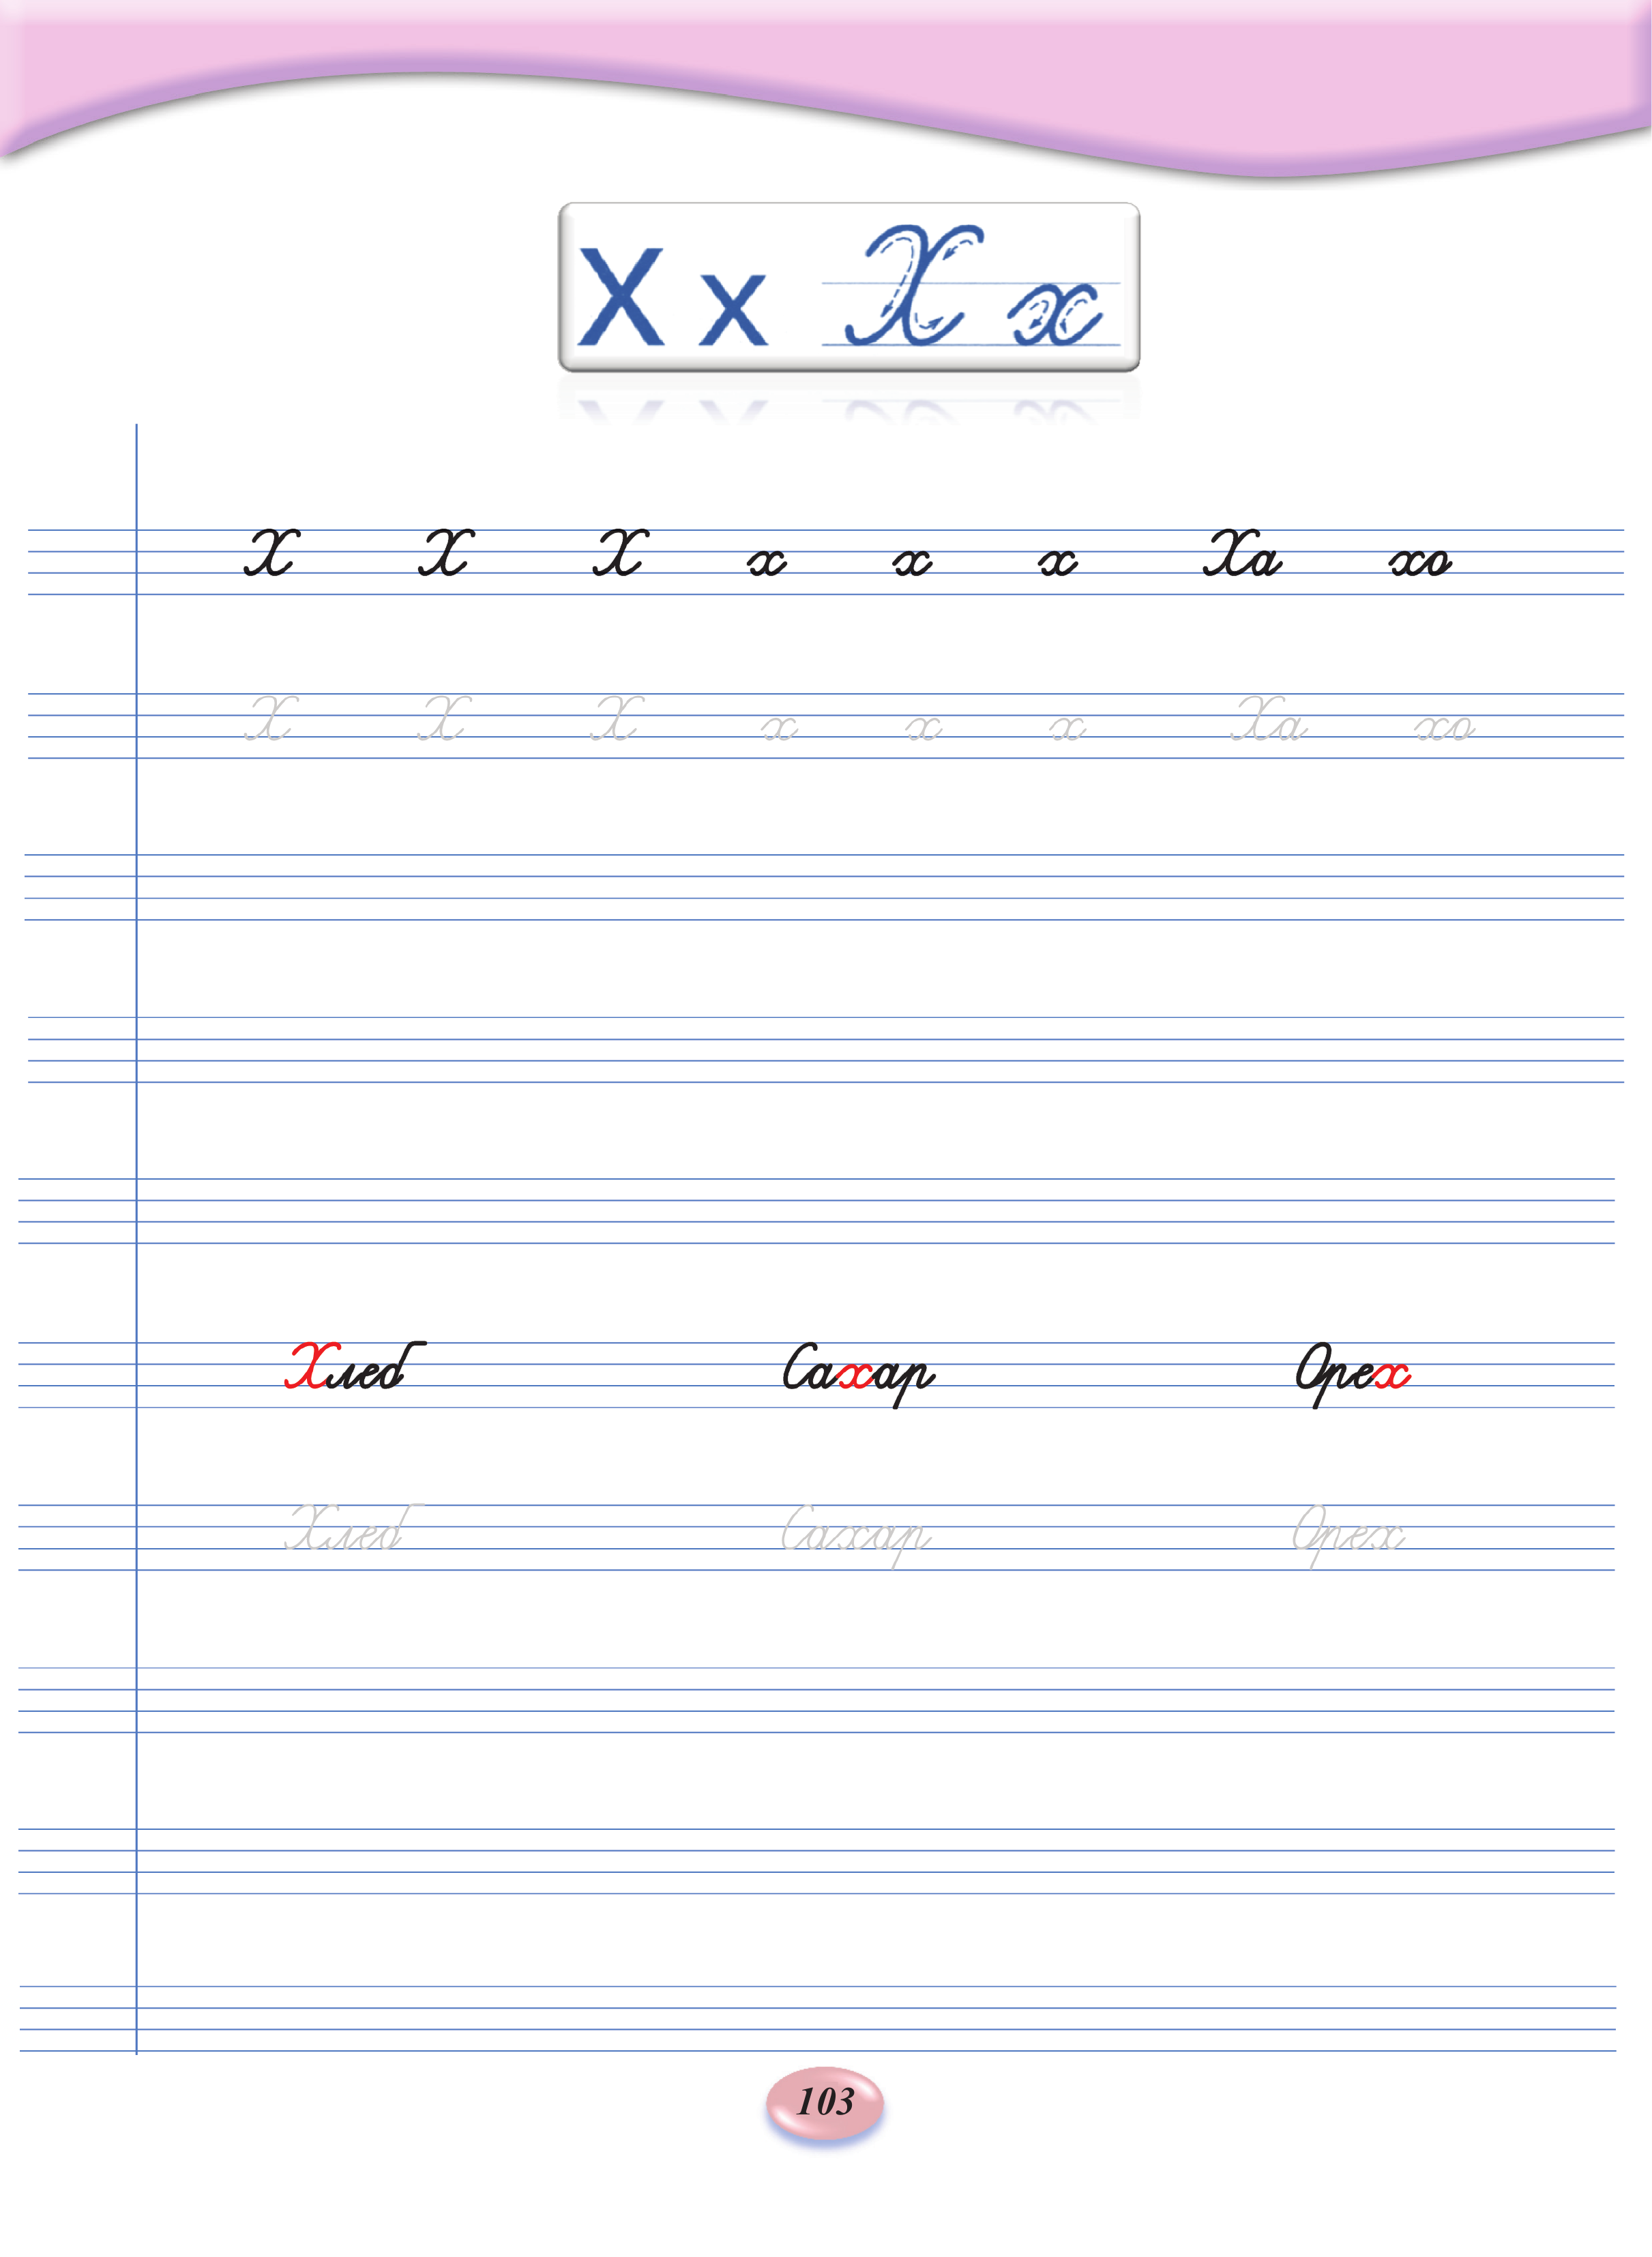 Х х Х х
Х Х Х х х х Ха хо
Х Х Х х х х Ха хо
Хлеб Сахар Орех
Хлеб Сахар Орех
103